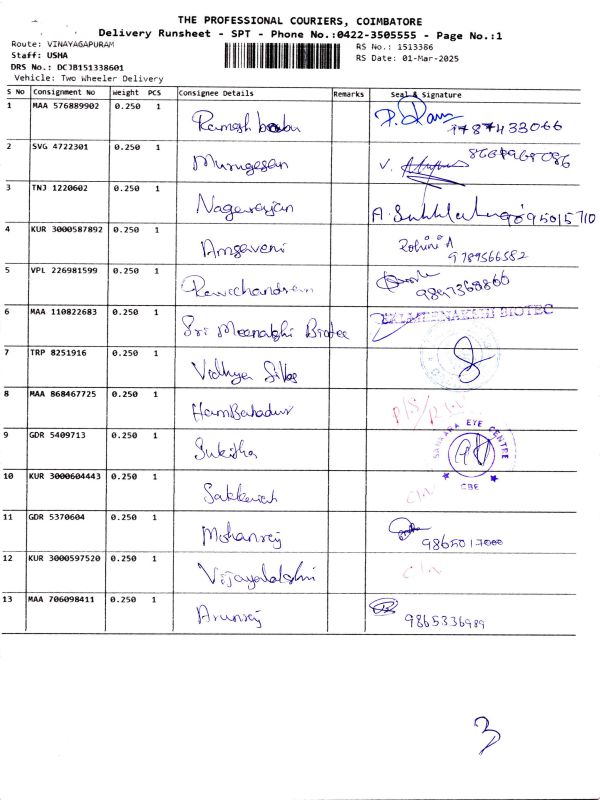 THE PROFESSIONAL COURIERS, COIMBATORE
Delivery Runsheet - SPT - Phone No.:0422-3505555 - Page No.:1
Route: VINAYAGAPURAM RS No.: 1513386
Staff: USHA RS Date: 01-Mar-2025
DRS No.: DCJB151338601
Vehicle: Two Wheeler Delivery
S No Consignment No Weight PCS Consignee Details Remarks Seal & Signature
1 MAA 576889902 0.250 1 Ramesh babu 9787433066
2 SVG 4722301 0.250 1 Murugesan V.
3 TNJ 1220602 0.250 1 Nagarajan A. 9095015710
4 KUR 3000587892 0.250 1 Amsaveni Rohini A
9789566582
5 VPL 226981599 0.250 1 Ravichandran
6 MAA 110822683 0.250 1 Sri Meenakshi Biotec SRI MEENAKSHI BIOTEC
7 TRP 8251916 0.250 1 Vidhya Silks
8 MAA 868467725 0.250 1 HamBahadur
9 GDR 5409713 0.250 1 Sukitha SANKARA EYE CENTRE
CBE
10 KUR 3000604443 0.250 1
11 GDR 5370604 0.250 1 Mohanraj 9865017000
12 KUR 3000597520 0.250 1 Vijayalakshmi
13 MAA 706098411 0.250 1 Arunraj 9865336989
3